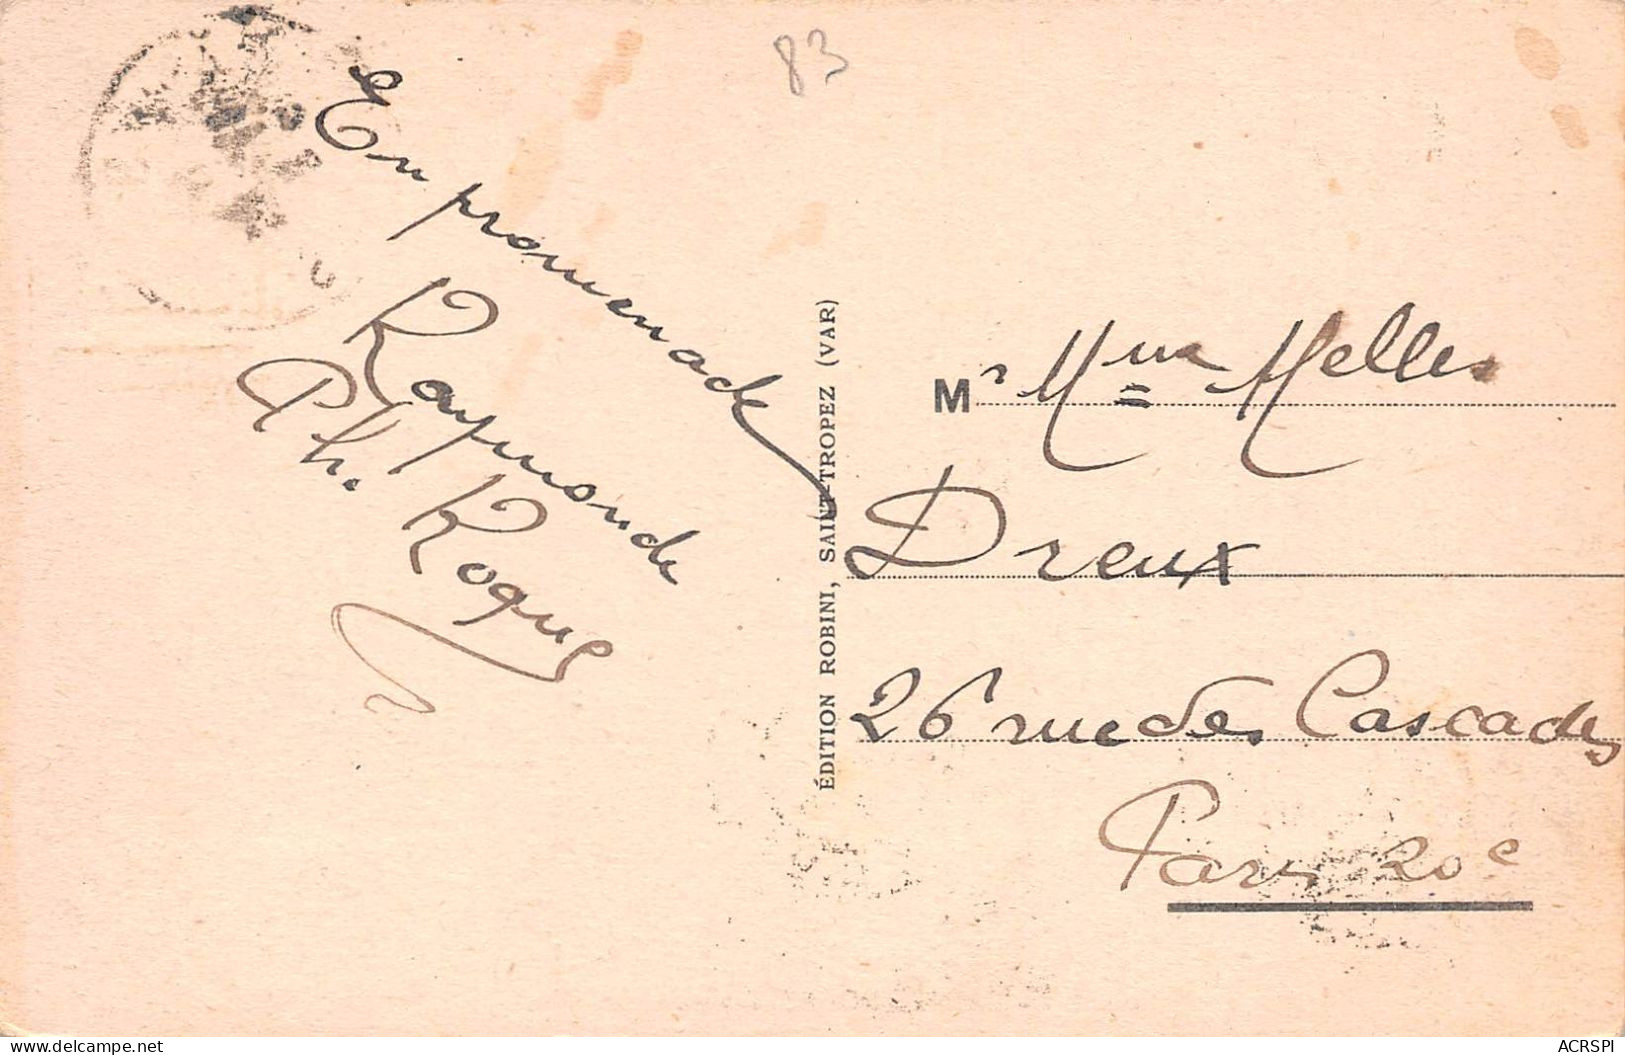 83
En promenade
Raymonde
Ph. Roque
ÉDITION ROBINI, SAINT-TROPEZ (VAR)
Mr Mme Melles
Dreux
26 rue des Cascades
Paris 20e
delcampe.net
ACRSPI